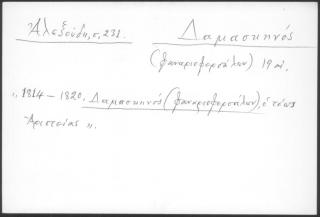 Ἀλεξούδη, σ. 231. Δαμασκηνός
(Φαναριοφερσάλων) 19 αἰ.
„ 1814 – 1820, Δαμασκηνός (Φαναριοφερσάλων), ὁ τέως
Ἀριστείας „.